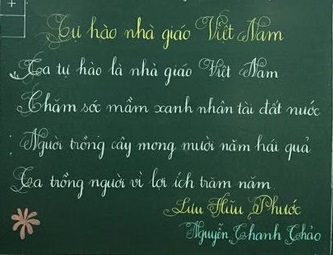 Tự hào nhà giáo Việt Nam
Ta tự hào là nhà giáo Việt Nam
Chăm sóc mầm xanh nhân tài đất nước
Người trồng cây mong mười năm hái quả
Ta trồng người vì lợi ích trăm năm
Lưu Hữu Phước
Nguyễn Chanh Chảo